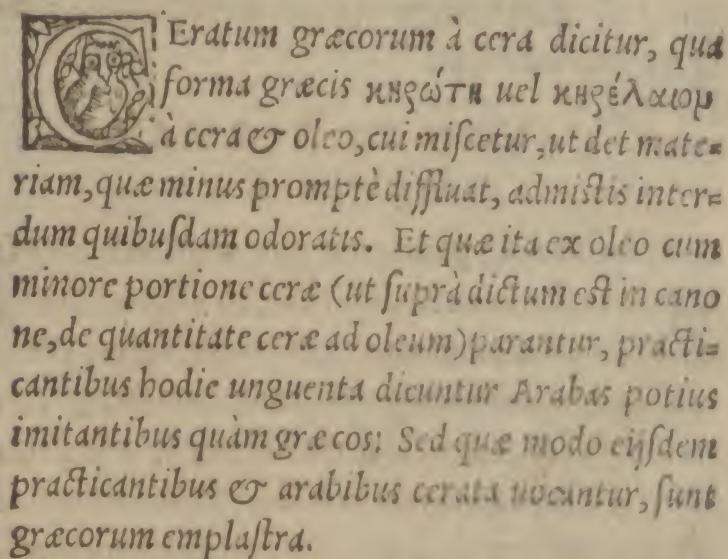 CEratum græcorum à cera dicitur, qua
forma græcis κηρώτη uel κηρέλαιον
à cera & oleo, cui miſcetur, ut det mate=
riam, quæ minus promptè diffluat, admiſtis inter=
dum quibuſdam odoratis. Et quæ ita ex oleo cum
minore portione ceræ (ut ſuprà dictum eſt in cano
ne, de quantitate ceræ ad oleum) parantur, practi=
cantibus hodie unguenta dicuntur Arabas potius
imitantibus quàm græcos: Sed quæ modo eijſdem
practicantibus & arabibus cerata uocantur, ſunt
græcorum emplaſtra.